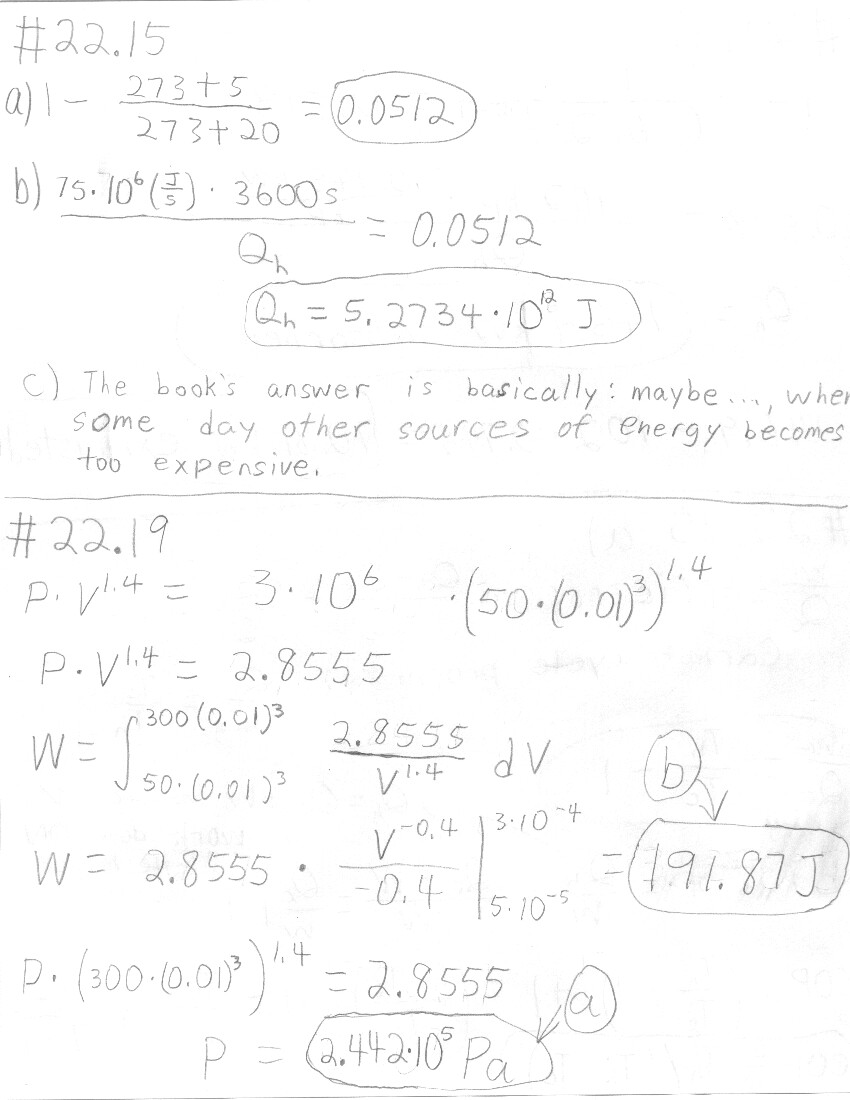 #22.15
a) 1 - (273+5)/(273+20) = 0.0512
b) 75·10⁶(J/s) · 3600s / Qh = 0.0512
Qh = 5.2734·10¹² J
c) The book's answer is basically: maybe..., wher
some day other sources of energy becomes
too expensive.
#22.19
P·V^1.4 = 3·10⁶ ·(50·(0.01)³)^1.4
P·V^1.4 = 2.8555
W = ∫_{50·(0.01)³}^{300(0.01)³} 2.8555/V^1.4 dV
b
W = 2.8555 · V^-0.4/-0.4 |_{5·10^-5}^{3·10^-4} = 191.87 J
P·(300·(0.01)³)^1.4 = 2.8555
a
P = 2.442·10⁵ Pa